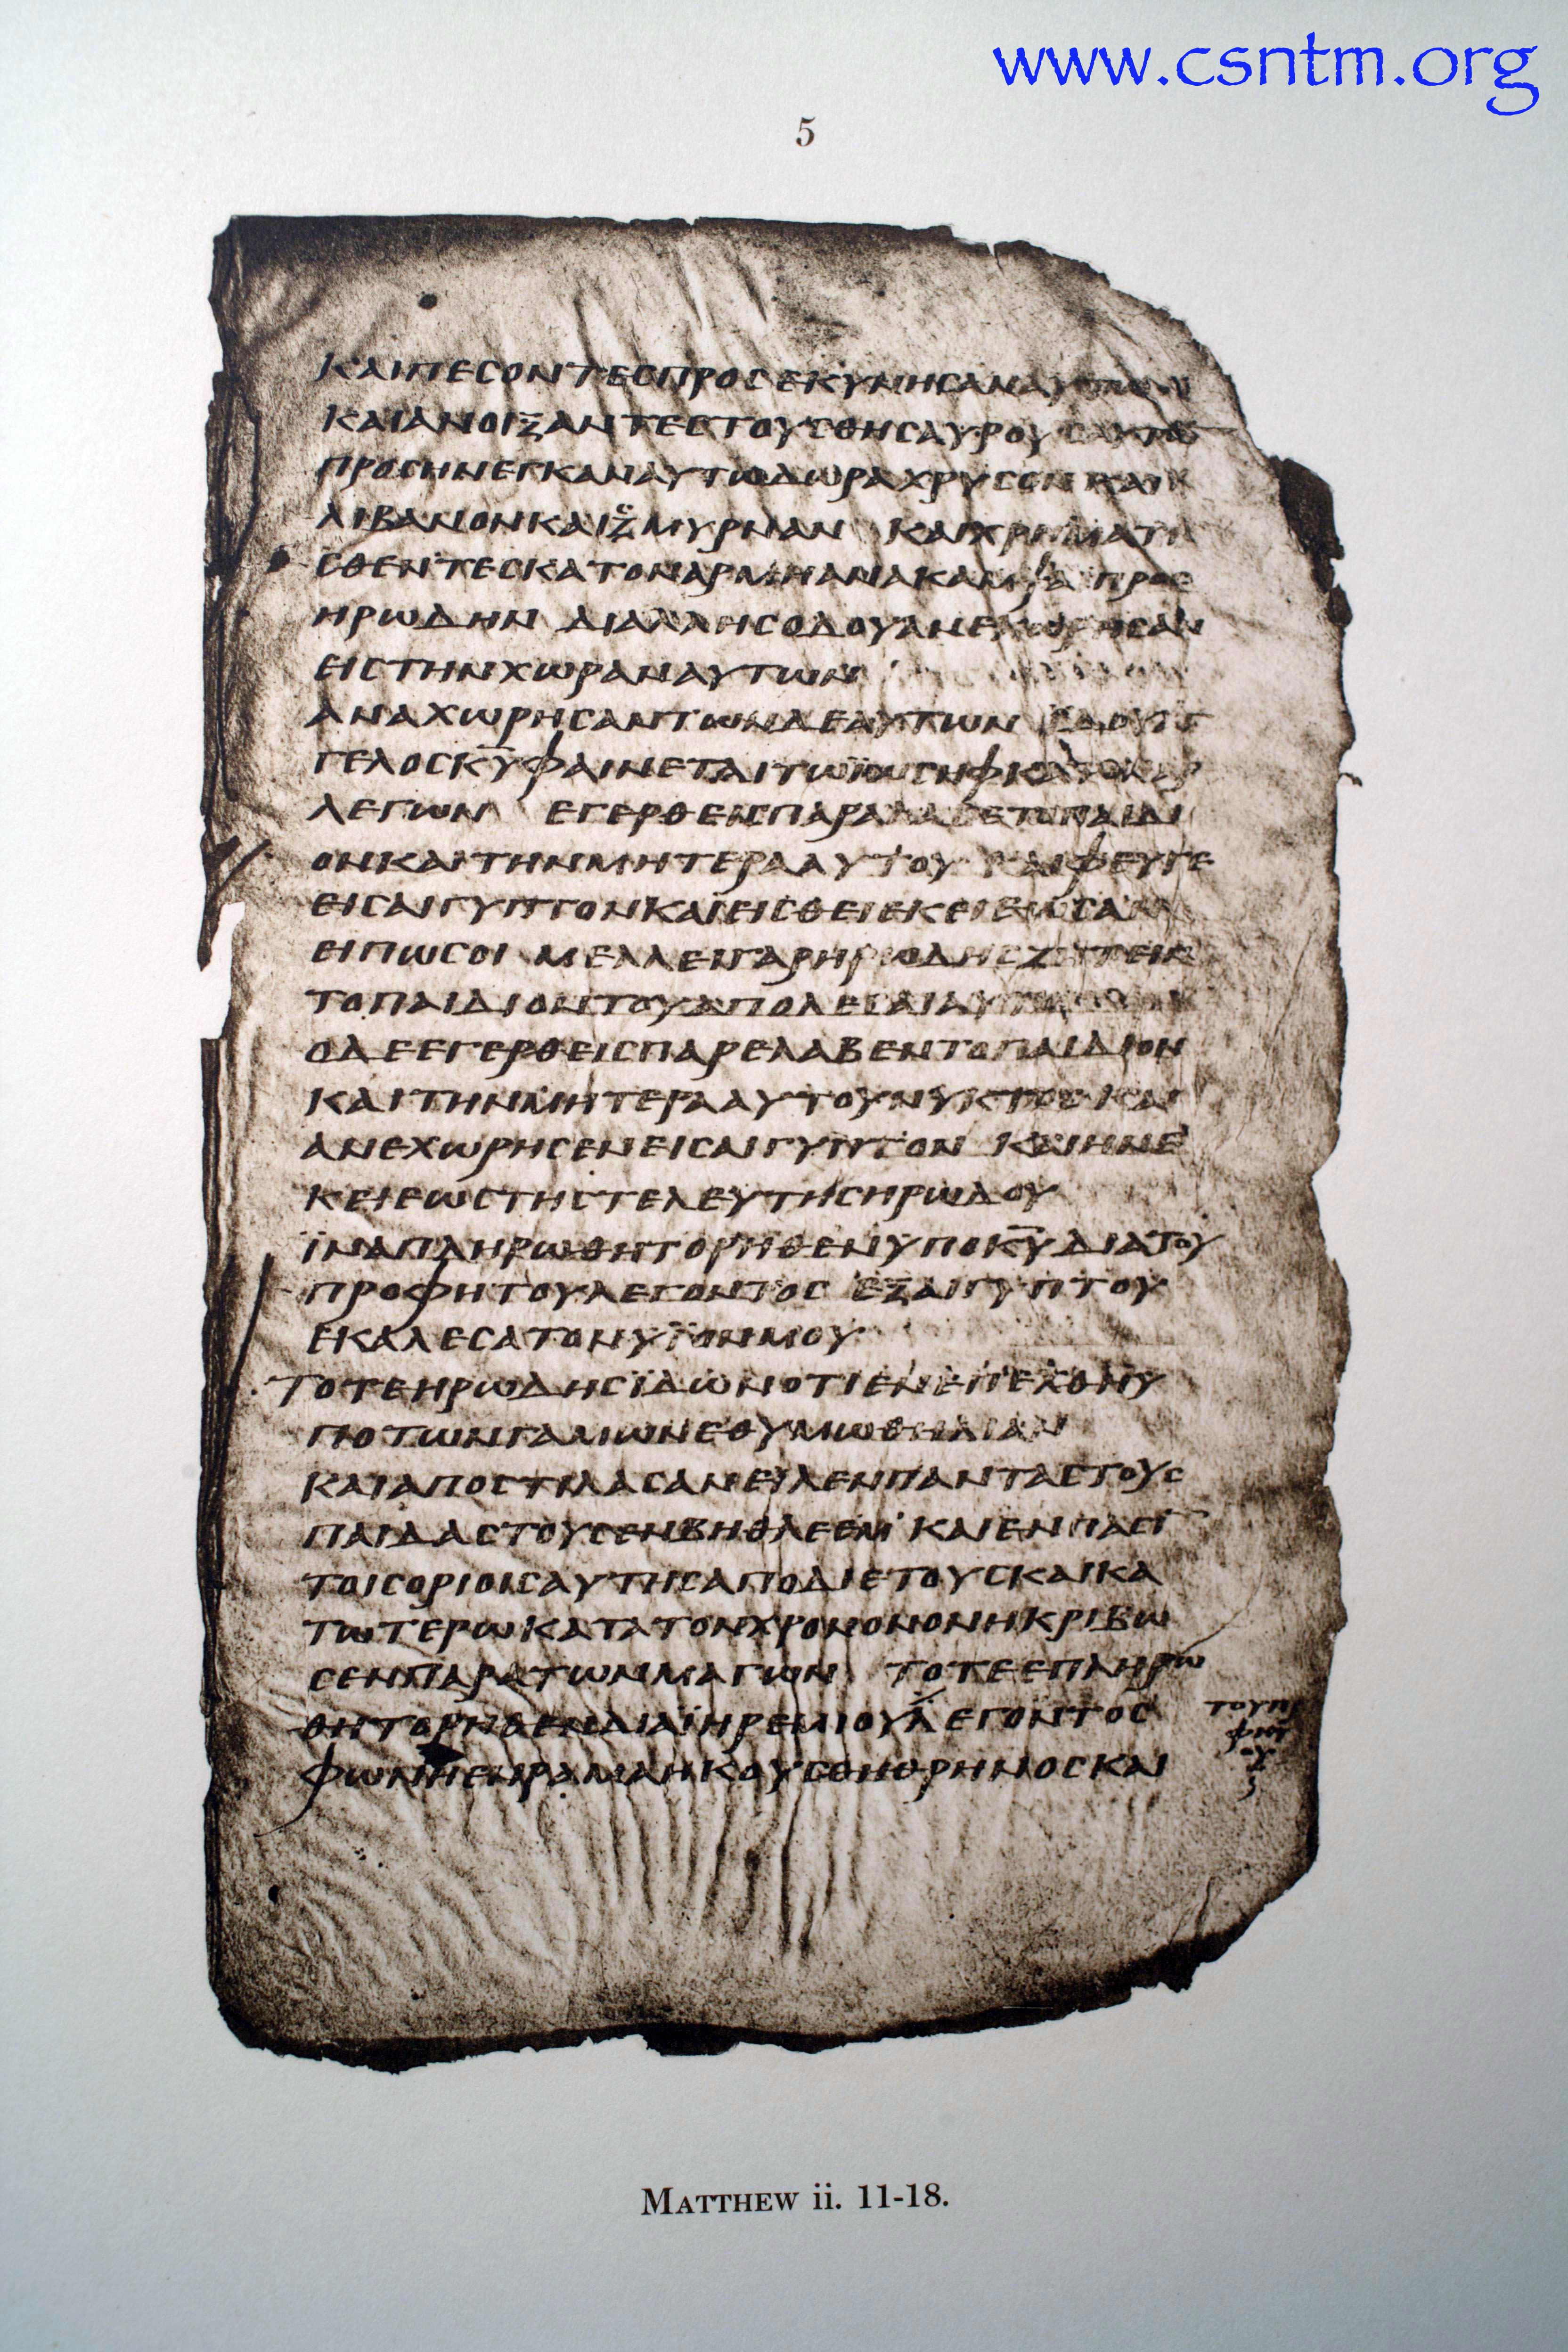 www.csntm.org
5
ΚΑΙΠΕϹΟΝΤΕϹΠΡΟϹΕΚΥΝΗϹΑΝΑΥΤΩ
ΚΑΙΑΝΟΙΞΑΝΤΕϹΤΟΥϹΘΗϹΑΥΡΟΥϹ
ΠΡΟϹΗΝΕΓΚΑΝΑΥΤΩΔΩΡΑΧΡΥϹΟΝΚΑΙ
ΛΙΒΑΝΟΝΚΑΙΖΜΥΡΝΑΝ ΚΑΙΧΡΗΜΑΤΙ
ϹΘΕΝΤΕϹΚΑΤΟΝΑΡΜΗΑΝΑΚΑΜΨΕ ΠΡΟϹ
ΗΡΩΔΗΝ ΔΙΑΛΛΗϹΟΔΟΥΑΝΕΧΩΡΗϹΑΝ
ΕΙϹΤΗΝΧΩΡΑΝΑΥΤΩΝ
ΑΝΑΧΩΡΗϹΑΝΤΩΝΔΕΑΥΤΩΝ
ΓΕΛΟϹΚ̅Υ̅ΦΑΙΝΕΤΑΙΤΩΪΩϹΗΦΚΑΤΟΝΑΡ
ΛΕΓΩΝ ΕΓΕΡΘΕΙϹΠΑΡΑΛΑΒΕΤΟΠΑΙΔΙ
ΟΝΚΑΙΤΗΝΜΗΤΕΡΑΑΥΤΟΥ ΚΑΙΦΕΥΓΕ
ΕΙϹΑΙΓΥΠΤΟΝΚΑΙΕΙϹΘΕΙΕΚΕΙΕΩϹΑΝ
ΕΙΠΩϹΟΙ ΜΕΛΛΕΙΓΑΡΗΡΩΔΗϹΖΗΤΕΙΝ
ΤΟΠΑΙΔΙΟΝΤΟΥΑΠΟΛΕϹΑΙΑΥΤΟ
ΟΔΕΕΓΕΡΘΕΙϹΠΑΡΕΛΑΒΕΝΤΟΠΑΙΔΙΟΝ
ΚΑΙΤΗΝΜΗΤΕΡΑΑΥΤΟΥΝΥΚΤΟϹ ΚΑΙ
ΑΝΕΧΩΡΗϹΕΝΕΙϹΑΙΓΥΠΤΟΝ ΚΑΙΗΝΕ
ΚΕΙΕΩϹΤΗϹΤΕΛΕΥΤΗϹΗΡΩΔΟΥ
ΪΝΑΠΛΗΡΩΘΗΤΟΡΗΘΕΝΥΠΟΚ̅Υ̅ΔΙΑΤΟΥ
ΠΡΟΦΗΤΟΥΛΕΓΟΝΤΟϹ ΕΞΑΙΓΥΠΤΟΥ
ΕΚΑΛΕϹΑΤΟΝΥΪΟΝΜΟΥ
ΤΟΤΕΗΡΩΔΗϹΪΔΩΝΟΤΙΕΝΕΠΕΧΘΗΥ
ΠΟΤΩΝΓΑΜΩΝΕΘΥΜΩΘΗΛΙΑΝ
ΚΑΙΑΠΟϹΤΙΛΑϹΑΝΕΙΛΕΝΠΑΝΤΑϹΤΟΥϹ
ΠΑΙΔΑϹΤΟΥϹΕΝΒΗΘΛΕΕΜ ΚΑΙΕΝΠΑϹΙ
ΤΟΙϹΟΡΙΟΙϹΑΥΤΗϹΑΠΟΔΙΕΤΟΥϹΚΑΙΚΑ
ΤΩΤΕΡΩΚΑΤΑΤΟΝΧΡΟΝΟΝΟΝΗΚΡΙΒΩ
ϹΕΝΠΑΡΑΤΩΝΜΑΓΩΝ ΤΟΤΕΕΠΛΗΡΩ
ΘΗΤΟΡΗΘΕΝΔΙΑΪΗΡΕΜΙΟΥΛΕΓΟΝΤΟϹ ΤΟΥΠΡ
ΦΗΤ
ΟΥ
ΦΩΝΗΕΝΡΑΜΑΗΚΟΥϹΘΗΘΡΗΝΟϹΚΑΙ
MATTHEW ii. 11-18.